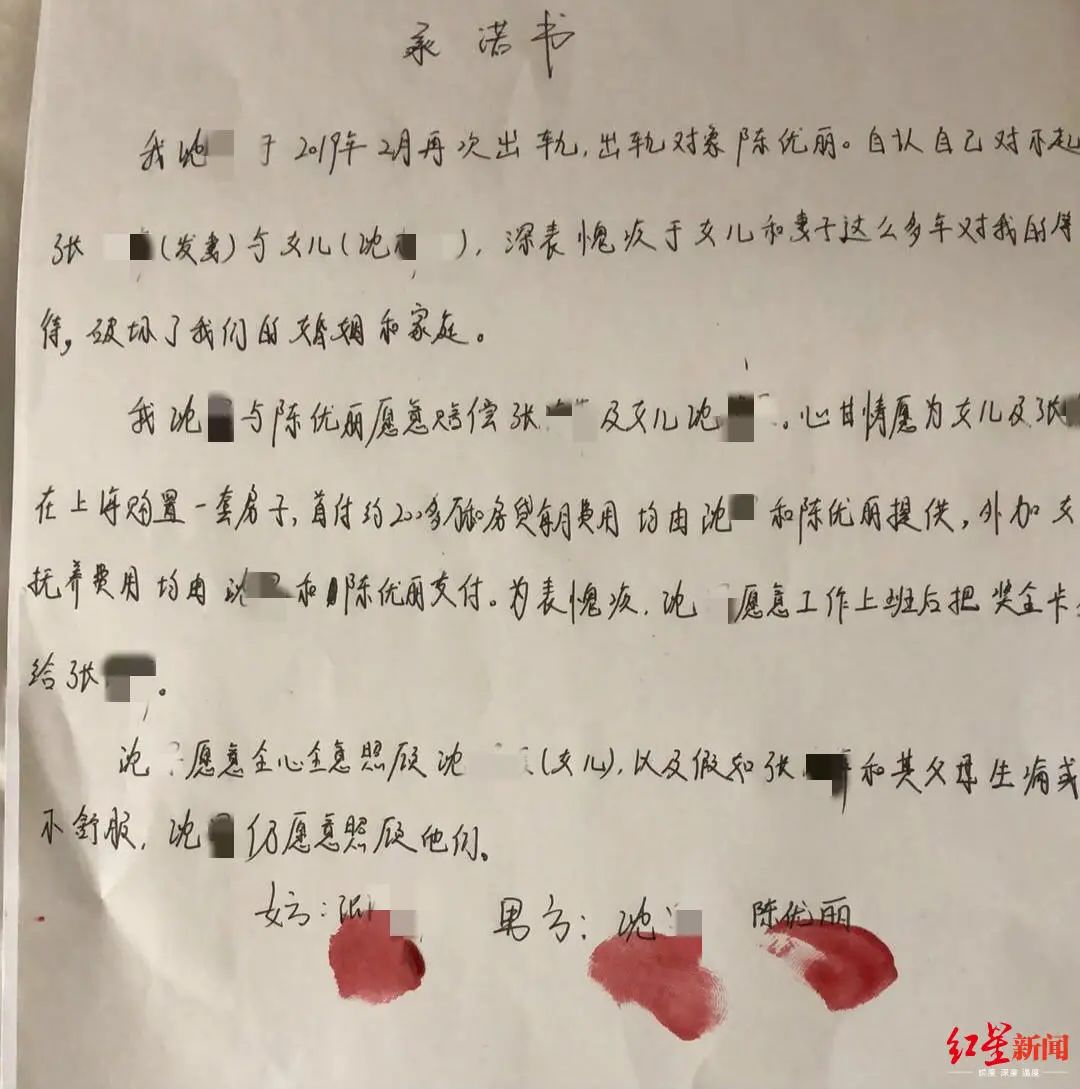 承诺书
我沈 于2019年2月再次出轨,出轨对象陈优丽。自认自己对不起
张 (发妻)与女儿(沈 ),深表愧疚于女儿和妻子这么多年对我的等
待,破坏了我们的婚姻和家庭。
我沈 与陈优丽愿意赔偿张 及女儿沈 。心甘情愿为女儿及张
在上海购置一套房子,首付约200多万和房贷每月费用均由沈 和陈优丽提供,外加女
抚养费用均由沈 和陈优丽支付。为表愧疚,沈 愿意工作上班后把奖金卡
给张 。
沈 愿意全心全意照顾沈 (女儿),以及假如张 和其父母生病或
不舒服,沈 仍愿意照顾他们。
女方: 男方:沈 陈优丽
红星新闻
锐度 深度 温度